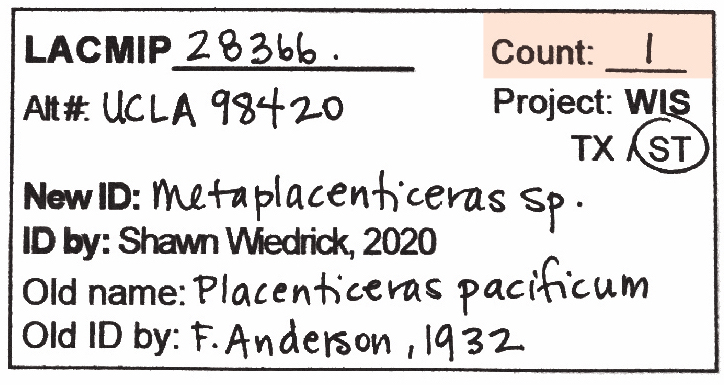 LACMIP 28366.
Count: 1
Alt#: UCLA 98420
Project: WIS
TX / ST
New ID: Metaplacenticeras sp.
ID by: Shawn Wiedrick, 2020
Old name: Placenticeras pacificum
Old ID by: F. Anderson, 1932